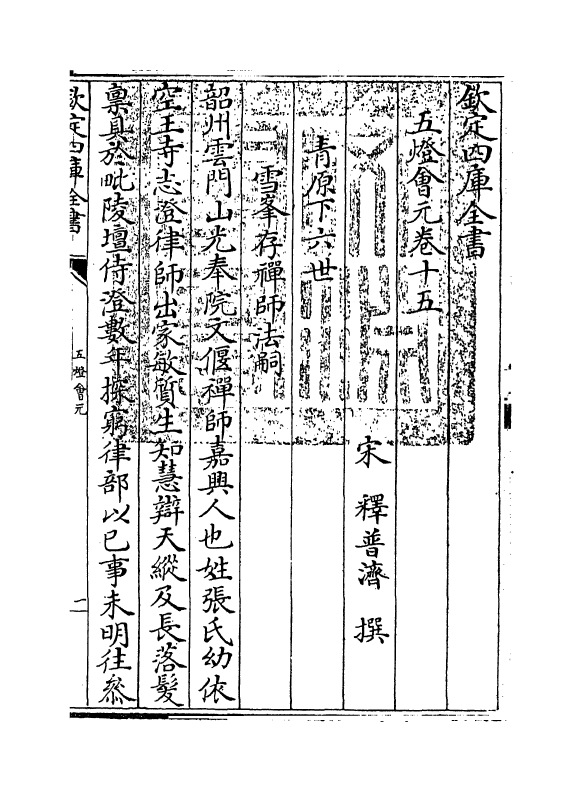 欽定四庫全書
五燈會元卷十五
宋 釋普濟 撰
青原下六世
雪峯存禪師法嗣
韶州雲門山光奉院文偃禪師嘉興人也姓張氏幼依
空王寺志澄律師出家敏質生知慧辯天縱及長落髮
稟具於毗陵壇侍澄數年探窮律部以已事未明往叅
欽定四庫全書
五燈會元